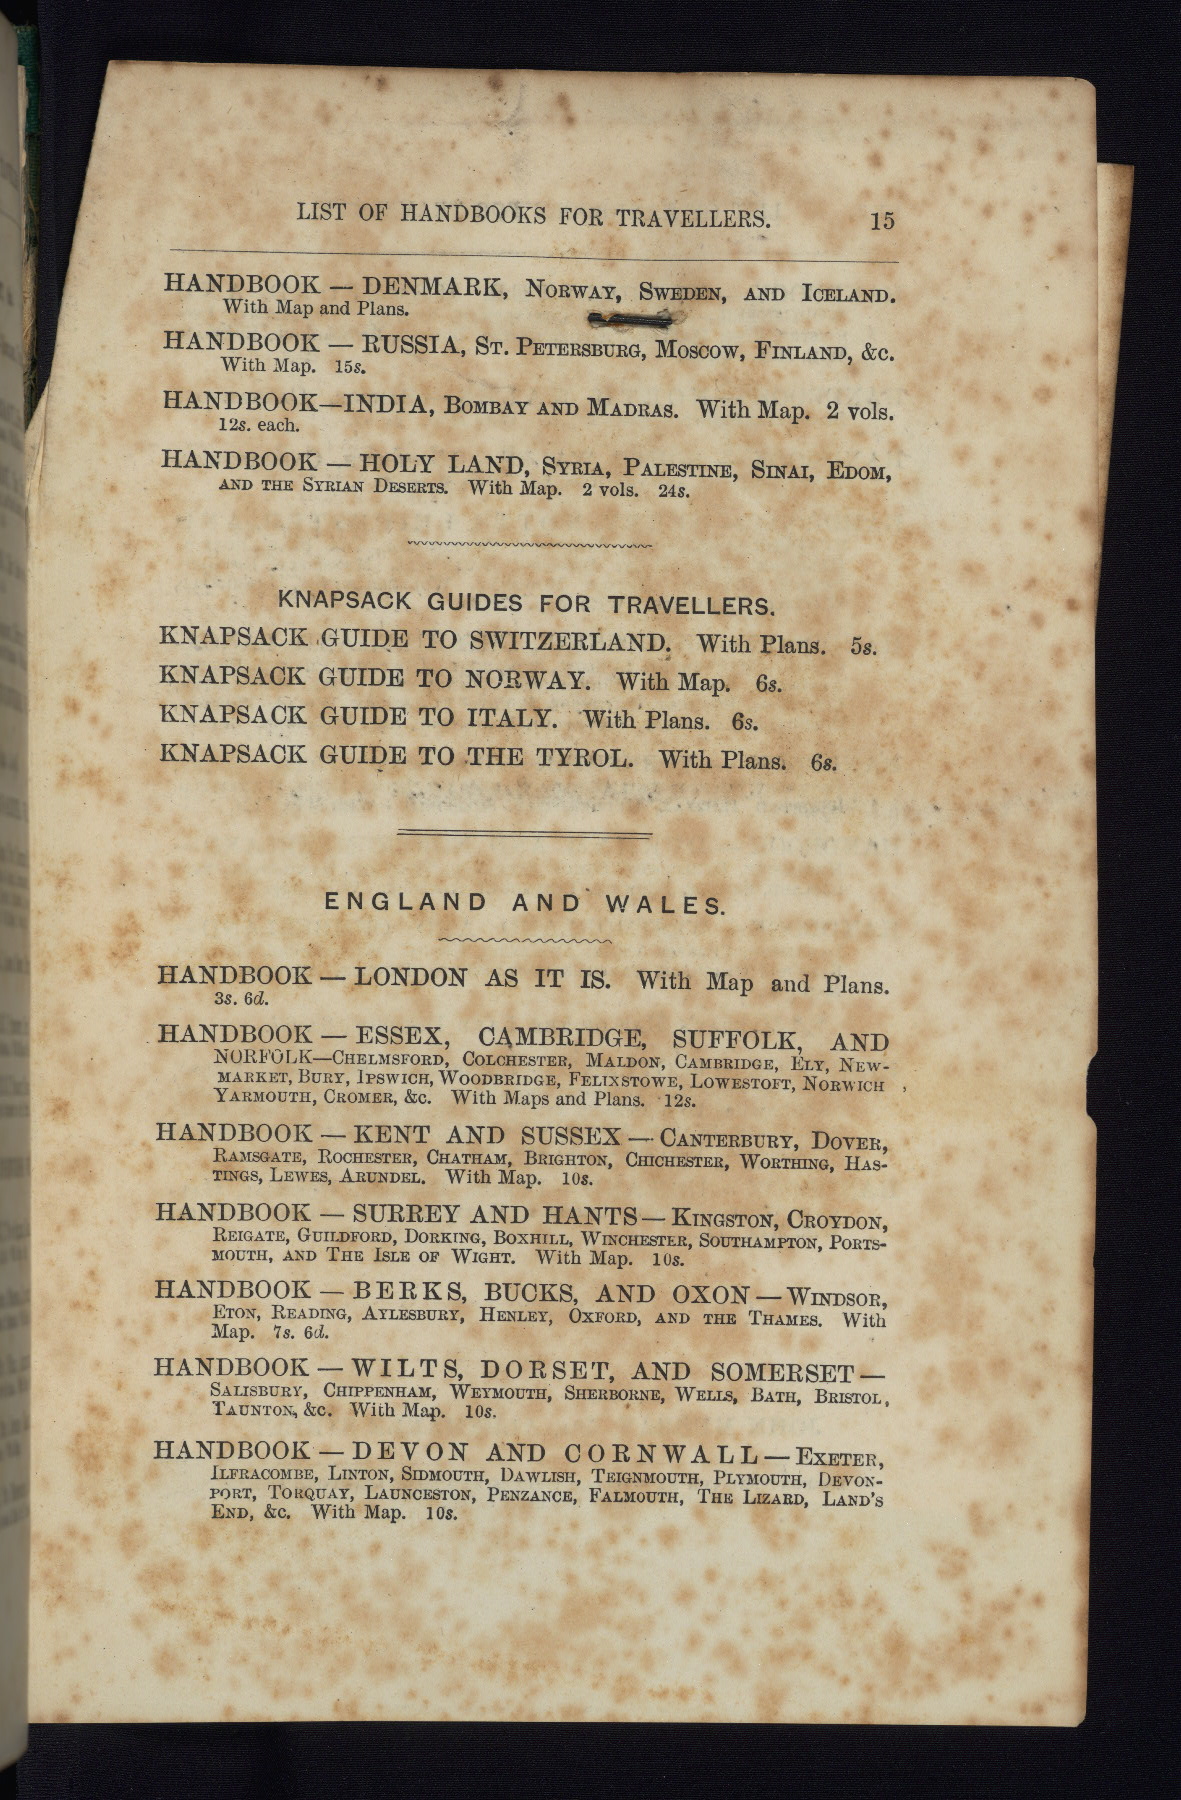 LIST OF HANDBOOKS FOR TRAVELLERS. 15
HANDBOOK — DENMARK, NORWAY, SWEDEN, AND ICELAND.
With Map and Plans.
HANDBOOK — RUSSIA, ST. PETERSBURG, MOSCOW, FINLAND, &C.
With Map. 15s.
HANDBOOK—INDIA, BOMBAY AND MADRAS. With Map. 2 vols.
12s. each.
HANDBOOK — HOLY LAND, SYRIA, PALESTINE, SINAI, EDOM,
AND THE SYRIAN DESERTS. With Map. 2 vols. 24s.
KNAPSACK GUIDES FOR TRAVELLERS.
KNAPSACK GUIDE TO SWITZERLAND. With Plans. 5s.
KNAPSACK GUIDE TO NORWAY. With Map. 6s.
KNAPSACK GUIDE TO ITALY. With Plans. 6s.
KNAPSACK GUIDE TO THE TYROL. With Plans. 6s.
ENGLAND AND WALES.
HANDBOOK — LONDON AS IT IS. With Map and Plans.
3s. 6d.
HANDBOOK — ESSEX, CAMBRIDGE, SUFFOLK, AND
NORFOLK—CHELMSFORD, COLCHESTER, MALDON, CAMBRIDGE, ELY, NEW-
MARKET, BURY, IPSWICH, WOODBRIDGE, FELIXSTOWE, LOWESTOFT, NORWICH,
YARMOUTH, CROMER, &C. With Maps and Plans. 12s.
HANDBOOK — KENT AND SUSSEX — CANTERBURY, DOVER,
RAMSGATE, ROCHESTER, CHATHAM, BRIGHTON, CHICHESTER, WORTHING, HAS-
TINGS, LEWES, ARUNDEL. With Map. 10s.
HANDBOOK — SURREY AND HANTS — KINGSTON, CROYDON,
REIGATE, GUILDFORD, DORKING, BOXHILL, WINCHESTER, SOUTHAMPTON, PORTS-
MOUTH, AND THE ISLE OF WIGHT. With Map. 10s.
HANDBOOK — BERKS, BUCKS, AND OXON — WINDSOR,
ETON, READING, AYLESBURY, HENLEY, OXFORD, AND THE THAMES. With
Map. 7s. 6d.
HANDBOOK — WILTS, DORSET, AND SOMERSET —
SALISBURY, CHIPPENHAM, WEYMOUTH, SHERBORNE, WELLS, BATH, BRISTOL,
TAUNTON, &c. With Map. 10s.
HANDBOOK — DEVON AND CORNWALL — EXETER,
ILFRACOMBE, LINTON, SIDMOUTH, DAWLISH, TEIGNMOUTH, PLYMOUTH, DEVON-
PORT, TORQUAY, LAUNCESTON, PENZANCE, FALMOUTH, THE LIZARD, LAND'S
END, &c. With Map. 10s.